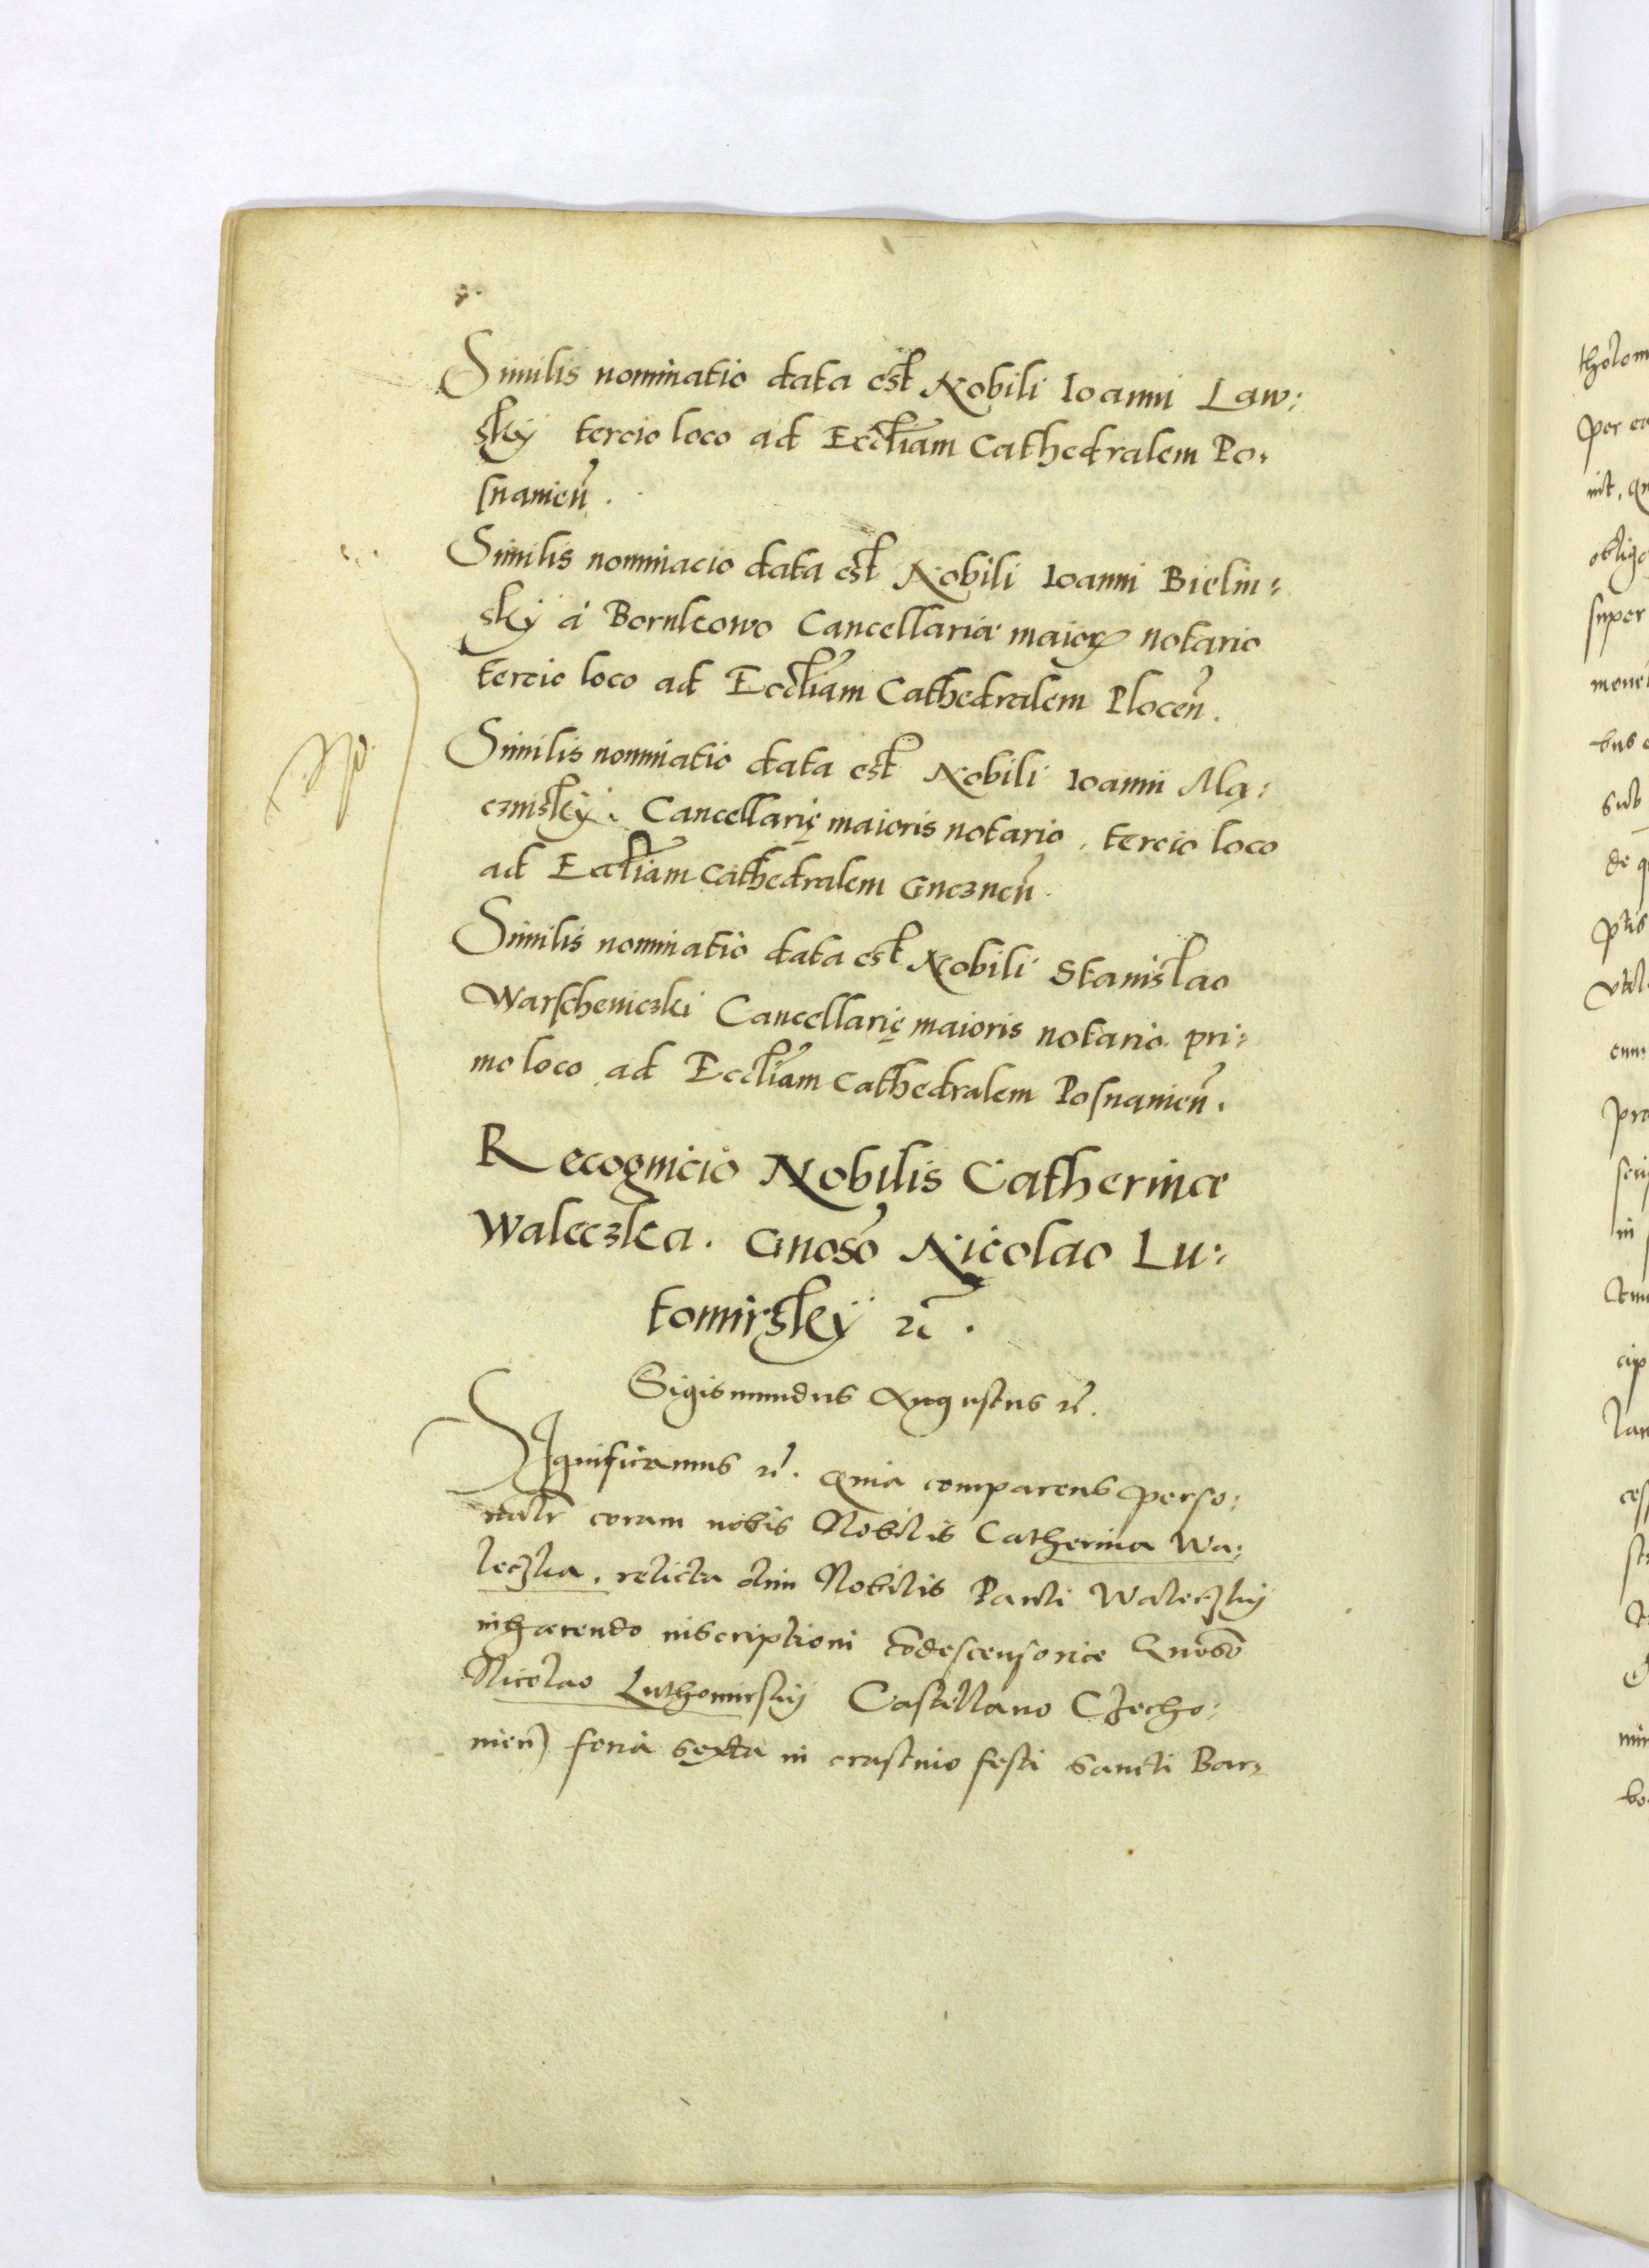 Similis nominatio data est Nobili Ioanni Law:
skÿ tercio loco ad Eccl̃iam Cathedralem Po,
snanieñ.
Similis nominacio data est Nobili Ioanni Bielin:
skÿ à Bornkowo Cancellariæ maior₂ notario
tercio loco ad Eccl̃iam Cathedralem Ploceñ.
Similis nominatio data est Nobili Ioanni Mą:
cznskÿ. Cancellarię maioris notario, tercio loco
ad Eccl̃iam Cathedralem Gnezneñ.
Similis nominatio data est Nobili Stanislao
Warscheniczki Cancellarię maioris notario pri:
mo loco ad Eccl̃iam Cathedralem Posnanieñ.
Recognicio Nobilis Catherinæ
Waleczka. Gnoso Nicolao Lu:
tomirskÿ ꝛc̃.
Sigismundus Augustus ꝛc̃.
SIgnificamus ꝛc̃. Quia comparens perso:
nalr̃ coram nobis Nobilis Catherina Wa:
leczka, relicta olim Nobilis Pauli Waleczkÿ
inhærendo inscriptioni cõdescensoriæ Gnoso
Nicolao Luthomirskÿ Castellano Czecho:
nieñ) feria sexta in crastino festi sancti Bar:
tholom
per
nit,
oblig
super
sub
de
cum
pra
in
cip